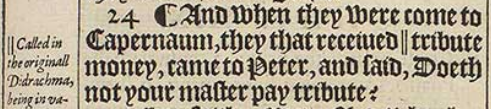 24 ¶ And when they were come to
Capernaum, they that receiued || tribute
money, came to Peter, and said, Doeth
not your master pay tribute?
|| Called in
the originall
Didrachma,
being in va-